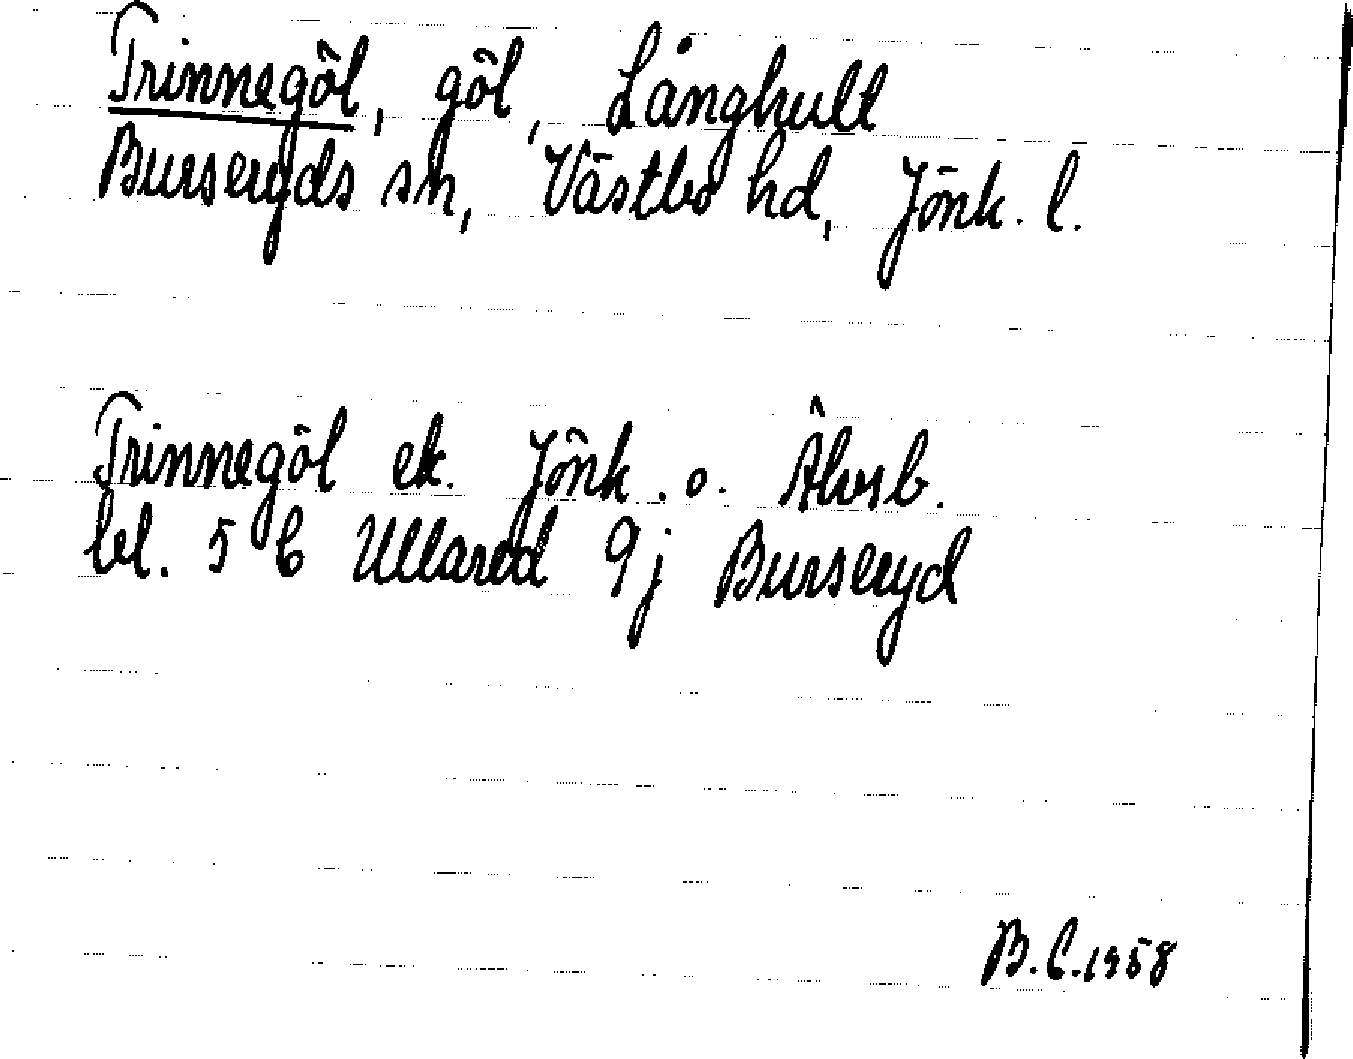 Trinnegöl, göl, Långhult
Burseryds sn, Västbo hd, Jönk. l.
Trinnegöl ek. Jönk. o. Älvsb.
bl. 5 C Ullared 9j Burseryd
B.C. 1958